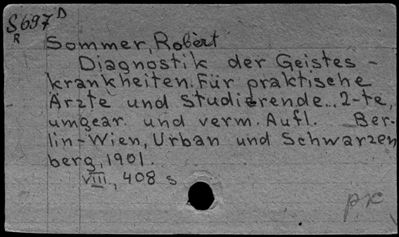 S697 D
R
Sommer, Robert
Diagnostik der Geistes-
krankheiten. Für praktische
Ärzte und Studierende.. 2-te,
umgear. und verm. Aufl. Ber-
lin-Wien, Urban und Schwarzen
berg, 1901.
VIII, 408 s.